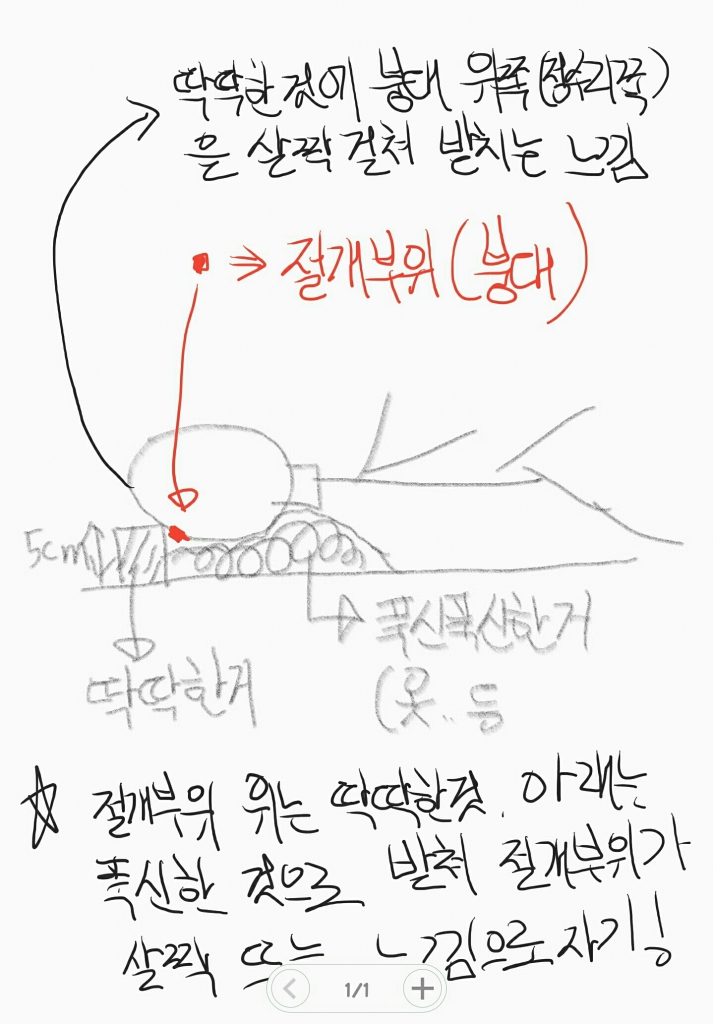 딱딱한 것에 붕대 위쪽(정수리쪽)
을 살짝 걸쳐 받치는 느낌
⇒ 절개부위(붕대)
5cm
딱딱한거
푹신푹신한거
(옷.. 등
☆ 절개부위 위는 딱딱한것. 아래는
푹신한 것으로 받쳐 절개부위가
살짝 뜨는 느낌으로 자기!
1/1